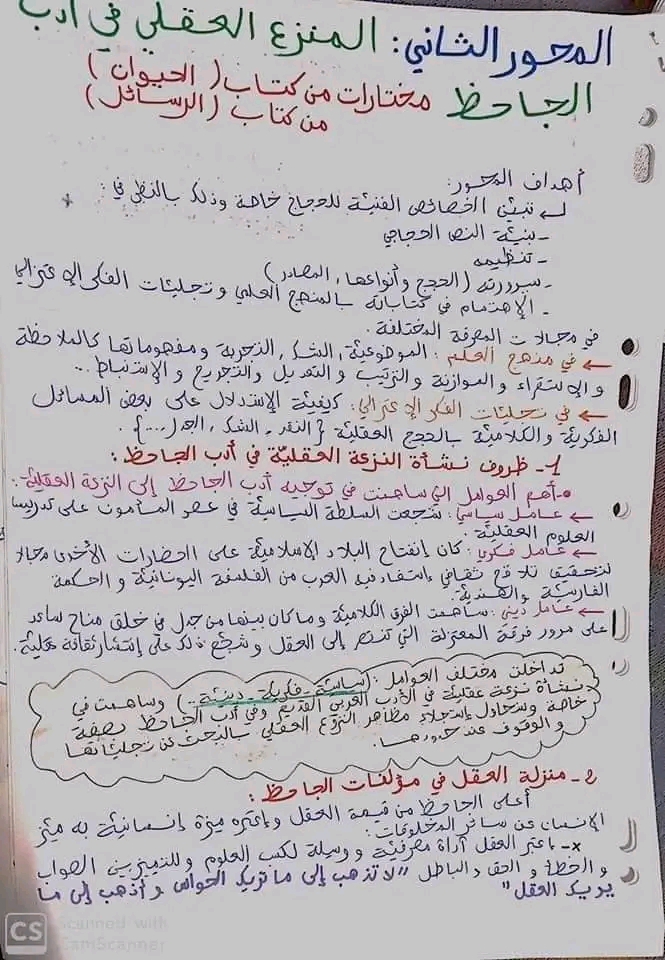 المحور الثاني: المنزع العقلي في أدب
الجاحظ مختارات من كتاب (الحيوان)
من كتاب (الرسائل)
أهداف المحور:
تبيّن الخصائص الفنيّة للحجاج خاصة وذلك بالنظر في:
- بنية النص الحجاجي
- تنظيمه
- سيرورته (الحجج وأنواعها، المصادر)
- الإهتمام في كتاباته بالمنهج العلمي وتجليات الفكر الإعتزالي
في مجالات المعرفة المختلفة.
← في منهج العلم: الموضوعية، الشك، التجربة ومفهوماتها كالملاحظة
والإستقراء والموازنة والترتيب والتعديل والتجريح والإستنباط...
← في تجليات الفكر الإعتزالي: كيفية الإستدلال على بعض المسائل
الفكرية والكلامية بالحجج العقلية {النقد، الشك، الجدل...}.
1- ظروف نشأة النزعة العقليّة في أدب الجاحظ:
•- أهم العوامل التي ساهمت في توجيه أدب الجاحظ إلى النزعة العقلية:
← عامل سياسي: شجعت السلطة السياسية في عصر المأمون على تدريس
العلوم العقلية.
← عامل فكري: كان إنفتاح البلاد الإسلامية على الحضارات الأخرى مجالا
لتحقيق تلاقح ثقافي إستفاد فيه العرب من الفلسفة اليونانية والحكمة
الفارسية والهندية.
← عامل ديني: ساهمت الفرق الكلامية وما كان بينها من جدل في خلق مناخ ساعد
على مرور فرقة المعتزلة التي تنتصر إلى العقل وشجع ذلك على إنتشار ثقافة عقلية.
تداخلت مختلف العوامل: (سياسية - فكرية - دينية..) وساهمت في
نشأة نزعة عقلية في الأدب العربي القديم وفي أدب الجاحظ بصفة
خاصة وسنحاول إستجلاء مظاهر النزوع العقلي بالبحث عن تجلياتها
والوقوف عند حدودها.
2- منزلة العقل في مؤلفات الجاحظ:
أعلى الجاحظ من قيمة العقل وإعتبره ميزة إنسانية به ميّز
الإنسان عن سائر المخلوقات:
×- إعتبر العقل أداة معرفية ووسيلة لكسب العلوم وللتمييز بين الصواب
والخطإ والحق والباطل "لا تذهب إلى ما تريك الحواس وأذهب إلى ما
يريك العقل"
CS Scanned with
CamScanner